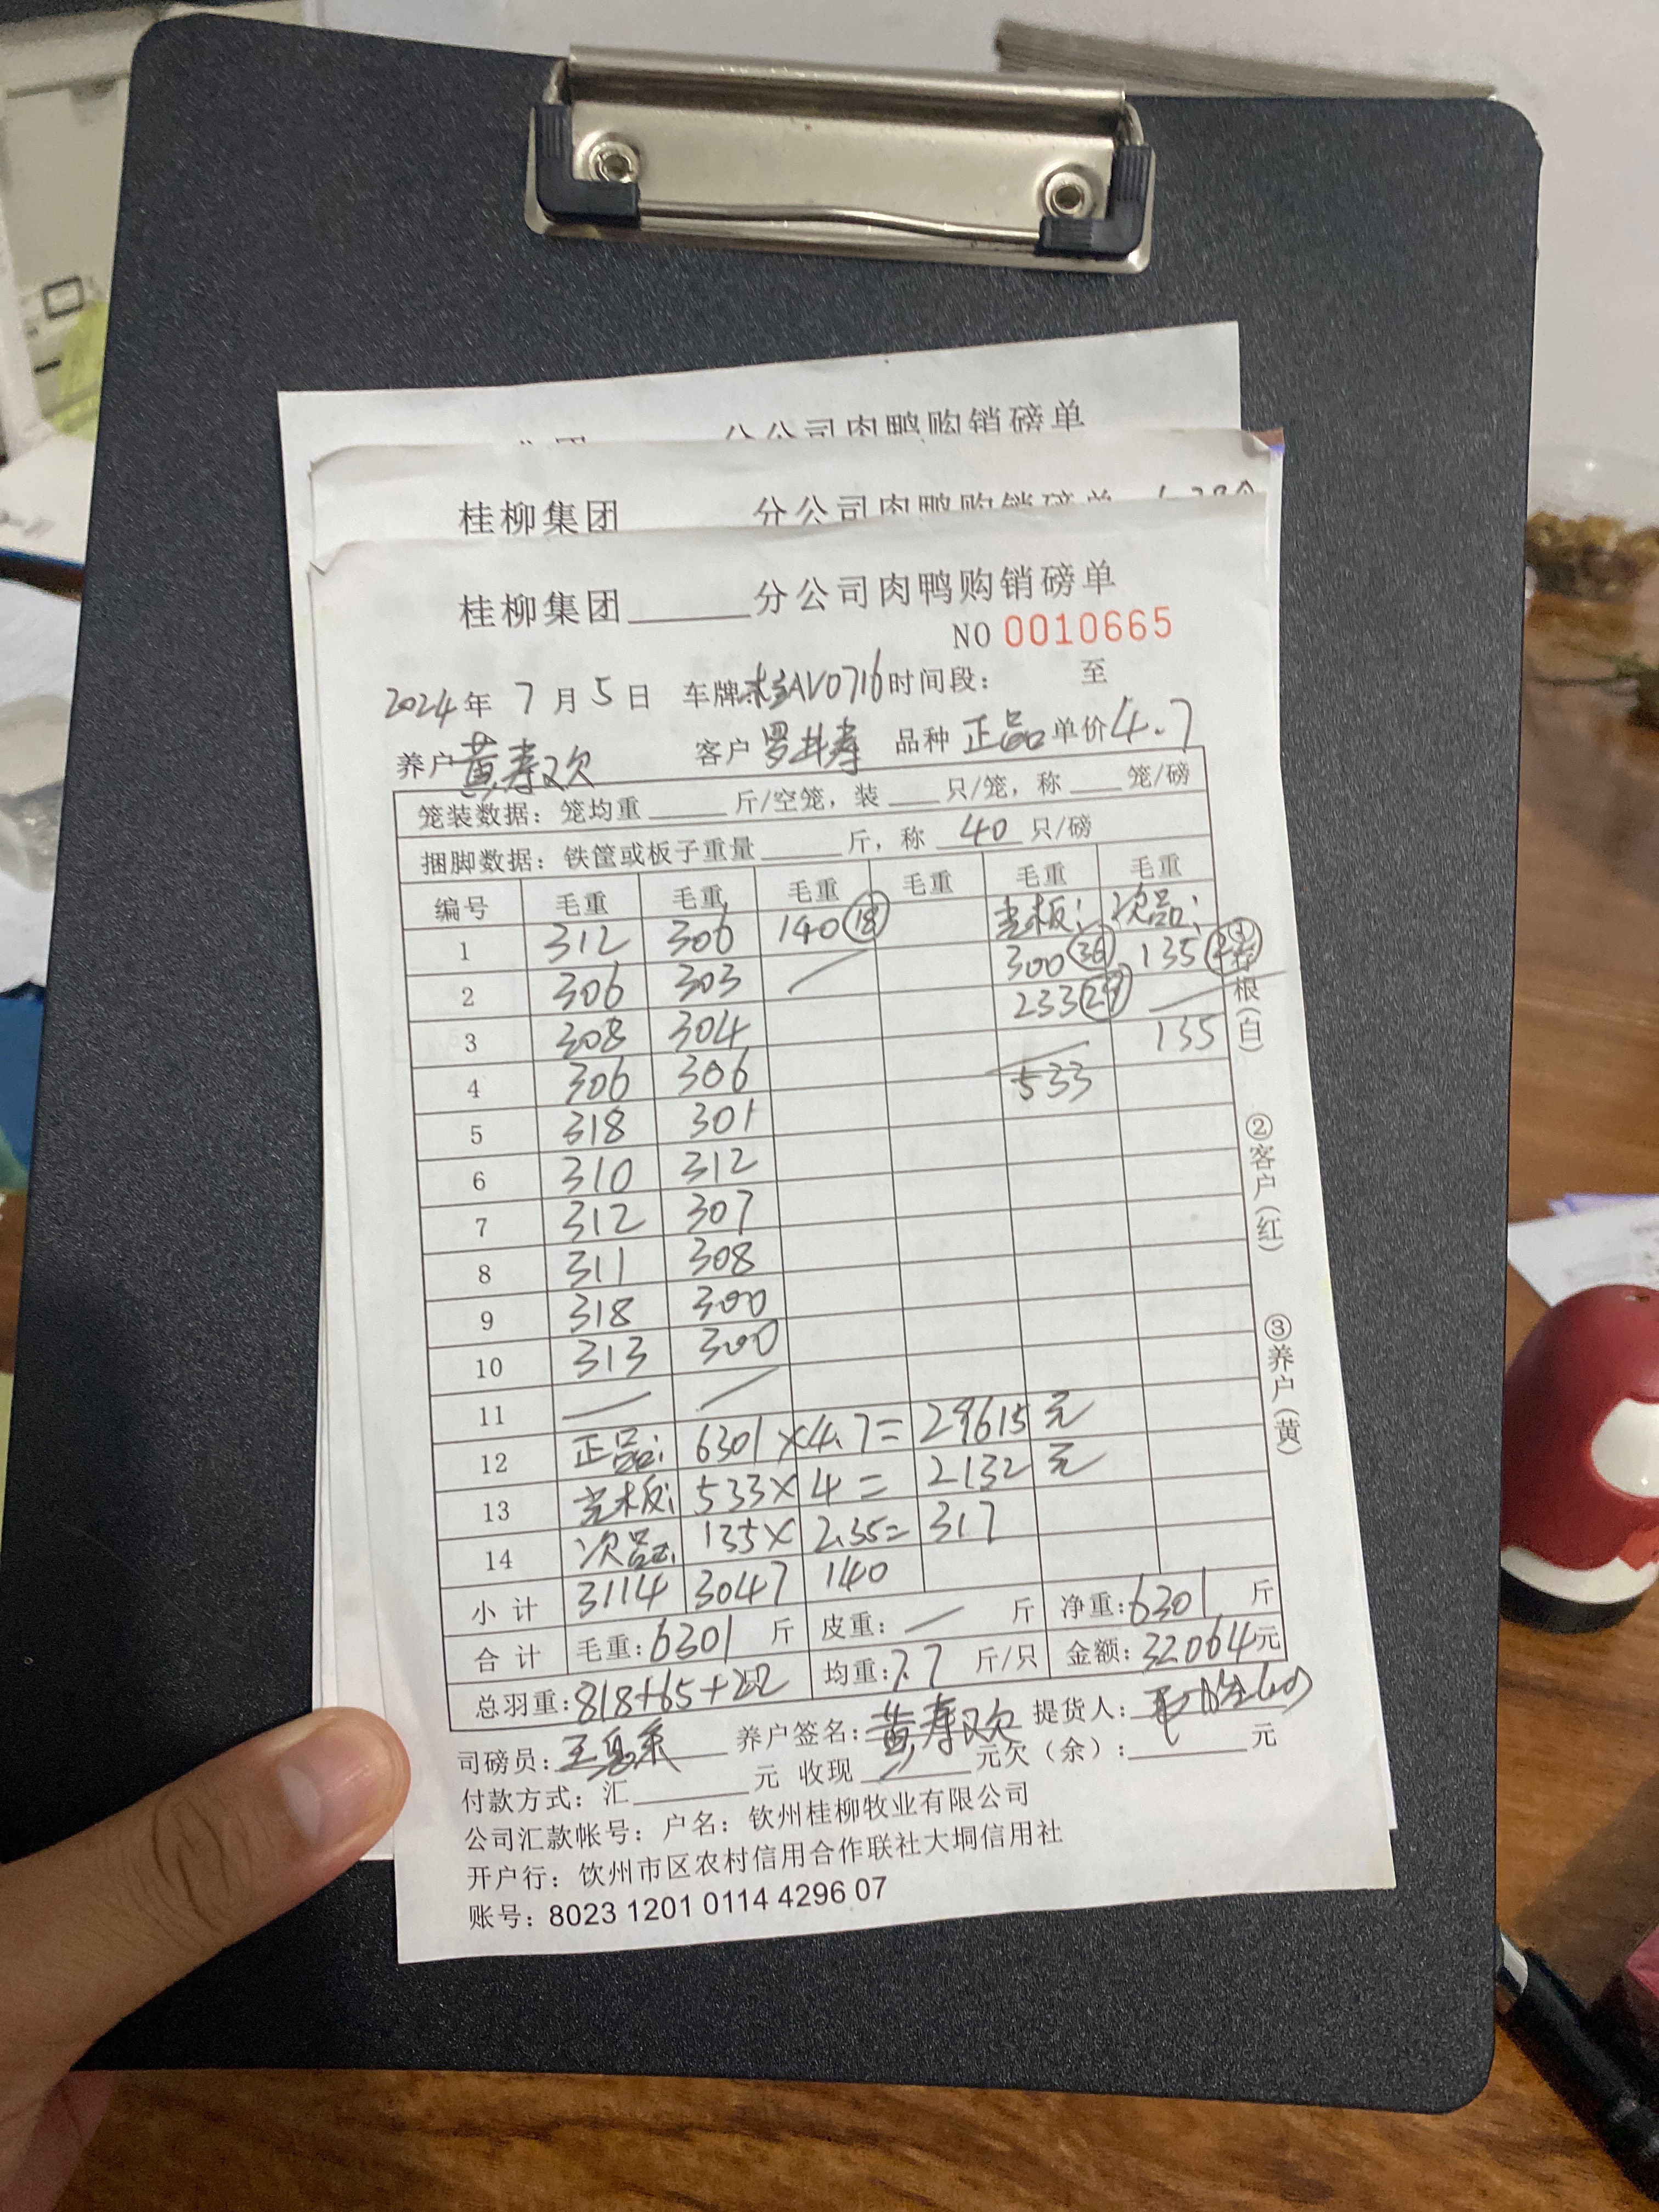 分公司肉鸭购销磅单
桂柳集团 分公司肉鸭购销磅单
桂柳集团______分公司肉鸭购销磅单
NO 0010665
2024年 7月 5日 车牌桂AV0716时间段: 至
养户黄寿欢 客户 品种 正品 单价4.7
笼装数据: 笼均重_____斤/空笼, 装___只/笼, 称___笼/磅
捆脚数据: 铁筐或板子重量_____斤, 称 40 只/磅
编号 毛重 毛重 毛重 毛重 毛重 毛重
光板: 次品:
1 312 306 140 18 300 36 135
2 306 303 233 29
3 308 304 135
4 306 306 533
5 318 301
6 310 312
7 312 307
8 311 308
9 318 300
10 313 300
11
12 正品: 6301×4.7= 29615 元
13 光板: 533×4= 2132 元
14 次品: 135×2.35= 317
小计 3114 3047 140
合计 毛重:6301 斤 皮重: — 斤 净重:6301 斤
总羽重:818+65+22 均重:7.7 斤/只 金额:32064元
司磅员: 养户签名:黄寿欢 提货人:
付款方式: 汇______元 收现______元欠(余):______元
公司汇款帐号: 户名: 钦州桂柳牧业有限公司
开户行: 钦州市区农村信用合作联社大垌信用社
账号: 8023 1201 0114 4296 07
①存根(白)
②客户(红)
③养户(黄)